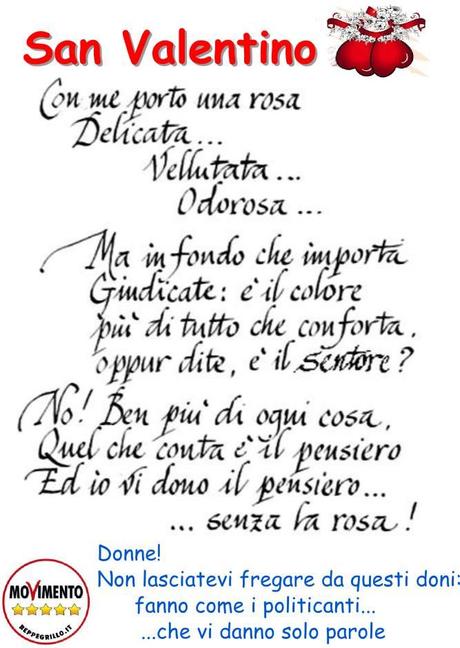 San Valentino
Con me porto una rosa
Delicata...
Vellutata...
Odorosa...
Ma in fondo che importa
Giudicate: e' il colore
piu' di tutto che conforta,
oppur dite, e' il sentore?
No! Ben piu' di ogni cosa,
Quel che conta e' il pensiero
Ed io vi dono il pensiero...
... senza la rosa!
Donne!
Non lasciatevi fregare da questi doni:
fanno come i politicanti...
...che vi danno solo parole
MOVIMENTO
BEPPEGRILLO.IT